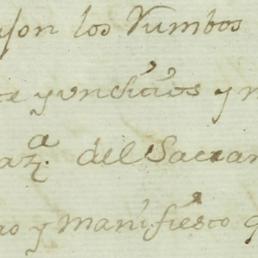 son los Rumbos
te y vnducios y m
az.^a del Sacram
no y manifiesto q